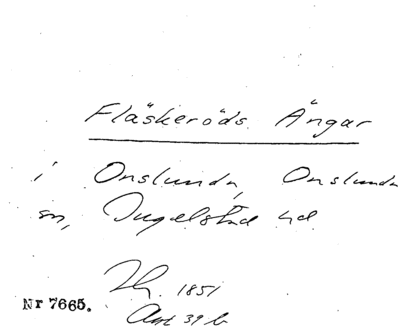 Fläskeröds Ängar
i Onslunda, Onslunda
sn, Ingelstad hd
1851
Nr 7665.
39 b